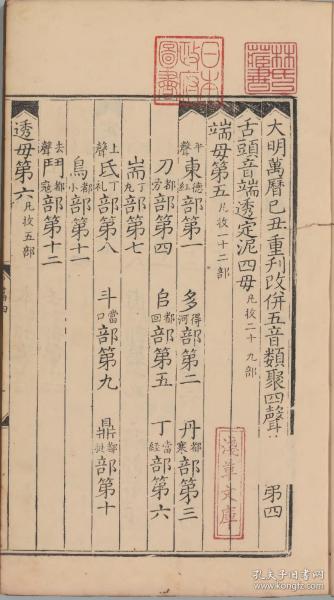 大明萬曆己丑重刋改併五音類聚四聲 苐四
舌頭音端透定泥四毋凡收二十九部
端毋第五凡收一十二部
平聲東德紅部第一 多得河部第二 丹都寒部第三
刀都勞部第四 𠂤都回部第五 丁當經部第六
耑丁丸部第七
上聲氐丁礼部第八 斗當口部第九 鼎都挺部第十
鳥都小部第十一
去聲鬥都豆部第十二
透毋第六凡收五部
日本政府圖書
林氏藏書
淺草文庫
孔夫子旧书网